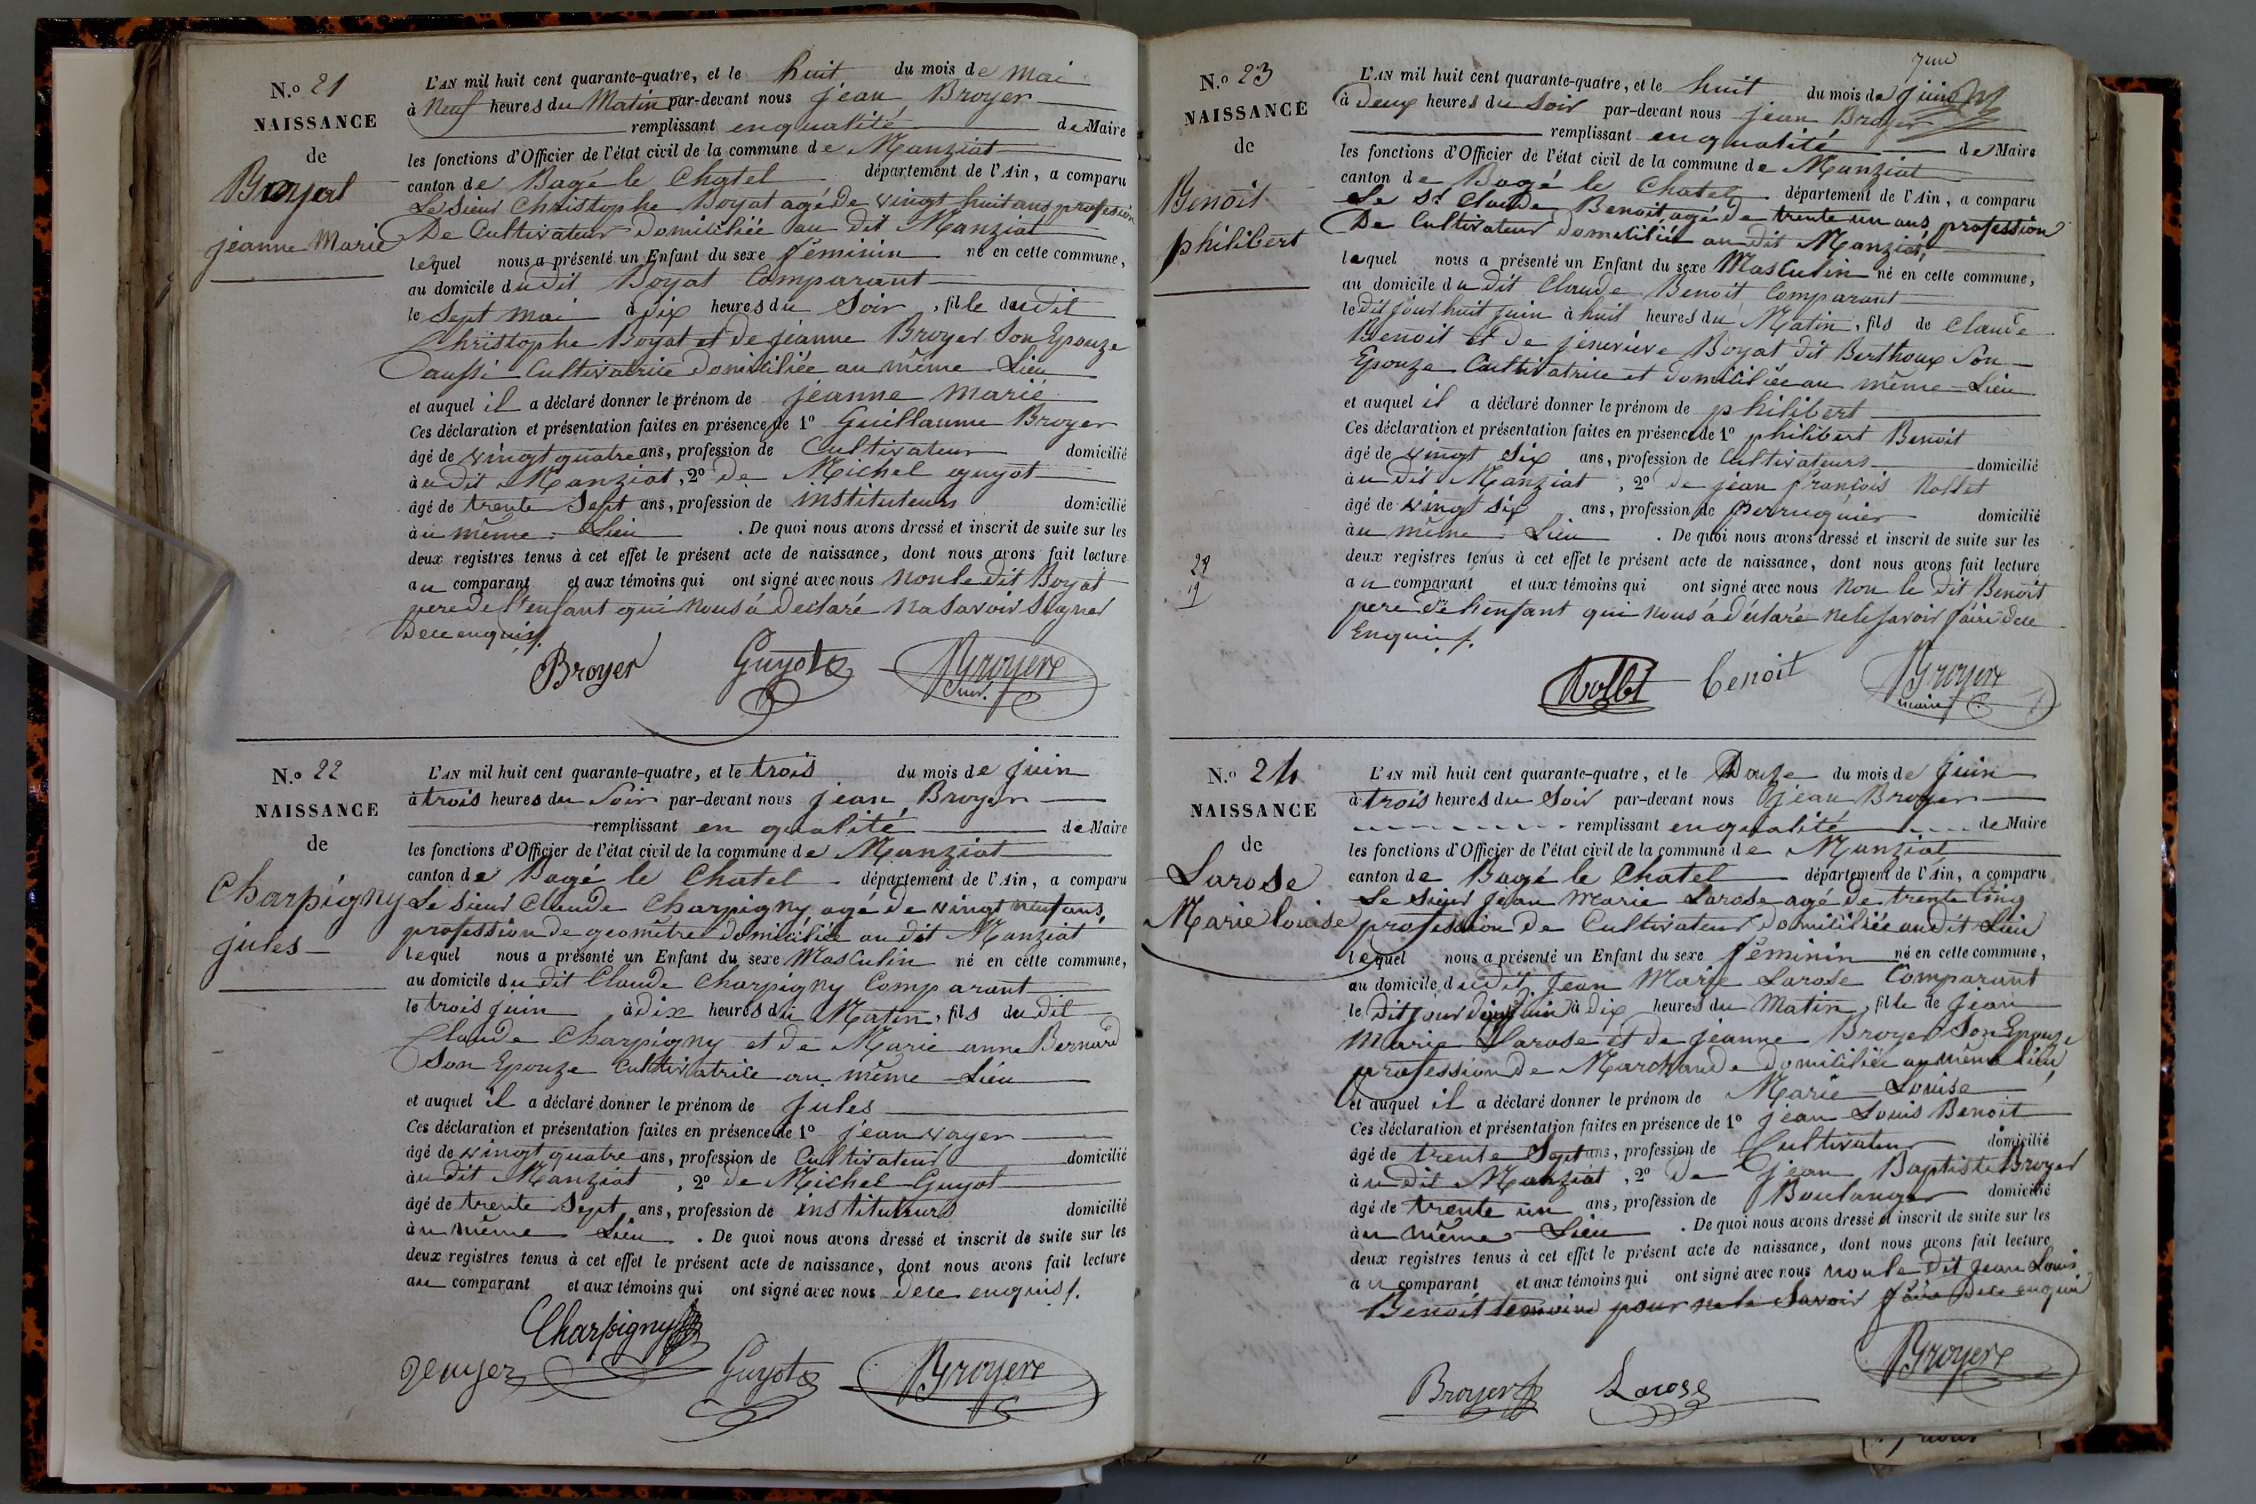 N.º 21
NAISSANCE
de
Boyat
jeanne Marie
L'AN mil huit cent quarante-quatre, et le huit du mois de Mai
à Neuf heures du Matin par-devant nous jean Broyer
remplissant en qualité de Maire
les fonctions d'Officier de l'état civil de la commune de Manziat
canton de Bagé le Chatel département de l'Ain, a comparu
Le Sieur Christophe Boyat agé de vingt huit ans profession
De Cultivateur domiciliée au dit Manziat
lequel nous a présenté un Enfant du sexe féminin né en cette commune,
au domicile du dit Boyat Comparant
le Sept Mai à dix heures du Soir, fille dudit
Christophe Boyat et de jeanne Broyer Son Epouze
aussi Cultivatrice domiciliée au même Lieu
et auquel il a déclaré donner le prénom de jeanne Marie
Ces déclaration et présentation faites en présence de 1º Guillaume Broyer
âgé de vingt quatre ans, profession de Cultivateur domicilié
àu dit Manziat, 2º de Michel guyot
âgé de trente Sept ans, profession de instituteurs domicilié
àu même Lieu. De quoi nous avons dressé et inscrit de suite sur les
deux registres tenus à cet effet le présent acte de naissance, dont nous avons fait lecture
au comparant et aux témoins qui ont signé avec nous Non le dit Boyat
pere de l'enfant qui Nous à declaré Na Savoir Signer
Dece enquis ƒ.
Broyer Guyot Broyer
N.º 22
NAISSANCE
de
Charpigny
jules
L'AN mil huit cent quarante-quatre, et le trois du mois de juin
à trois heures du Soir par-devant nous jean Broyer
remplissant en qualité de Maire
les fonctions d'Officier de l'état civil de la commune de Manziat
canton de Bagé le Chatel département de l'Ain, a comparu
Le Sieur Claude Charpigny agé de vingt neuf ans,
profession de geomêtre domiciliée au dit Manziat
lequel nous a présenté un Enfant du sexe Masculin né en cette commune,
au domicile du dit Claude Charpigny Comparant
le trois juin à dix heures du Matin, fils du dit
Claude Charpigny et de Marie anne Bernard
Son Epouze Cultivatrice au même Lieu
et auquel il a déclaré donner le prénom de jules
Ces déclaration et présentation faites en présence de 1º jean voyer
âgé de vingt quatre ans, profession de Cultivateur domicilié
àu dit Manziat, 2º de Michel Guyot
âgé de trente Sept ans, profession de instituteurs domicilié
àu même Lieu. De quoi nous avons dressé et inscrit de suite sur les
deux registres tenus à cet effet le présent acte de naissance, dont nous avons fait lecture
au comparant et aux témoins qui ont signé avec nous dece enquis ƒ.
Charpigny
Guyot Broyer
N.º 23
NAISSANCE
de
Benoit
philibert
L'AN mil huit cent quarante-quatre, et le huit du mois de juin
à deux heures du Soir par-devant nous jean Broyer
remplissant en qualité de Maire
les fonctions d'Officier de l'état civil de la commune de Manziat
canton de Bagé le Chatel département de l'Ain, a comparu
Le Sr Claude Benoit agé de trente un ans profession
De Cultivateur domiciliée au dit Manziat,
lequel nous a présenté un Enfant du sexe Masculin né en cette commune,
au domicile du dit Claude Benoit Comparant
le dit jour huit juin à huit heures du Matin, fils de Claude
Benoit et de jenevieve Boyat dit Berthoux Son
Epouze Cultivatrice et domiciliée au même Lieu
et auquel il a déclaré donner le prénom de philibert
Ces déclaration et présentation faites en présence de 1º philibert Benoit
âgé de vingt Six ans, profession de Cultivateurs domicilié
àu dit Manziat, 2º de jean françois Nollet
âgé de vingt Six ans, profession de perruquier domicilié
àu même Lieu. De quoi nous avons dressé et inscrit de suite sur les
deux registres tenus à cet effet le présent acte de naissance, dont nous avons fait lecture
au comparant et aux témoins qui ont signé avec nous Non le dit Benoit
pere de l'enfant qui nous à déclaré ne le Savoir faire dece
Enquis ƒ.
Nollet benoit Broyer
maire
N.º 24
NAISSANCE
de
Larose
Marie louise
L'AN mil huit cent quarante-quatre, et le Douze du mois de juin
à trois heures du Soir par-devant nous jean Broyer
remplissant en qualité de Maire
les fonctions d'Officier de l'état civil de la commune de Manziat
canton de Bagé le Chatel département de l'Ain, a comparu
Le Sieur jean Marie Larose agé de trente Cinq
profession de Cultivateur domiciliée au dit Lieu
lequel nous a présenté un Enfant du sexe féminin né en cette commune,
au domicile dudit jean Marie Larose Comparant
le dit jour juin à dix heures du Matin, fille de jean
Marie Larose et de jeanne Broyer Son Epouze
profession de Marchande domiciliée au même lieu
et auquel il a déclaré donner le prénom de Marie Louise
Ces déclaration et présentation faites en présence de 1º jean Louis Benoit
âgé de trente Sept ans, profession de Cultivateur domicilié
àu dit Manziat, 2º de jean Baptiste Broyer
âgé de trente un ans, profession de Boulanger domicilié
àu même Lieu. De quoi nous avons dressé et inscrit de suite sur les
deux registres tenus à cet effet le présent acte de naissance, dont nous avons fait lecture
au comparant et aux témoins qui ont signé avec nous non le dit jean Louis
Benoit temoin pour ne le Savoir faire Dece enquis
Broyer Larose Broyer